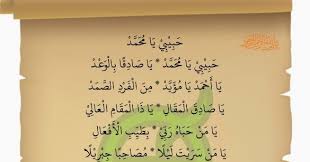 حَبِيْبِيْ يَا مُحَمَّدْ
حَبِيْبِيْ يَا مُحَمَّدْ * يَا صَادِقًا بِالْوَعْدْ
يَا أَحْمَدْ يَا مُؤَيَّدْ * مِنَ الْفَرْدِ الصَّمَدْ
يَا صَادِقَ الْمَقَالِ * يَا ذَا الْمَقَامِ الْعَالِيْ
يَا مَنْ حَبَاهُ رَبِّيْ * بِطَيِّبِ الْأَفْعَالِ
يَا مَنْ سَرَيْتَ لَيْلًا * مُصَاحِبًا جِبْرِيْلَا